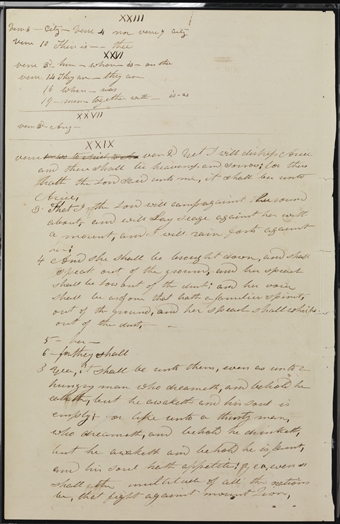 XXIII
vers 6 — City — verse 4 nor verse 7 City
verse 10 There is — — thee
XXVI
verse 3d him — whom — is — on thee
verse 14 They are — they are
16 whom — was
19 — men — together with — is as
XXVII
vers 3 — Any —
XXIX
verse ver 2 Yet I will distress Ariel
and there shall be heaviness and sorrow; for thus
hath the Lord said unto me, it shall be unto
Ariel,
3 That I, the Lord will camp against her round
about, and will lay siege against her with
a mount, and I will raise forts against
her;
4 And she shall be brought down, and shall
speak out of the ground, and her speech
shall be low out of the dust; and her voice
shall be as of one that hath a familiar spirit,
out of the ground, and her speech shall whisper
out of the dust,
5 — her —
6 — for they shall
8 Yea, it shall be unto them, even as unto a
hungry man who dreameth, and behold he
eateth, but he awaketh and his soul is
empty; or like unto a thirsty man,
who dreameth, and behold he drinketh,
but he awaketh and behold he is faint,
and his soul hath appetite; yea, even so
shall the multitude of all the nations
be, that fight against mount Zion,